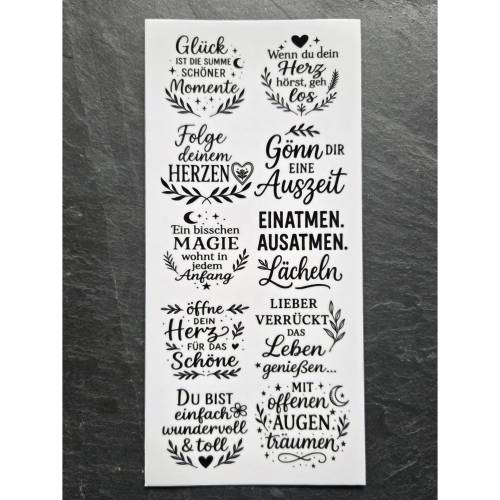 Glück
IST DIE SUMME
SCHÖNER
Momente
Wenn du dein
Herz
hörst, geh
los
Folge
deinem
HERZEN
Gönn DIR
EINE
Auszeit
Ein bisschen
MAGIE
wohnt in
jedem
Anfang
EINATMEN.
AUSATMEN.
Lächeln
öffne
DEIN
Herz
FÜR DAS
Schöne
LIEBER
VERRÜCKT
DAS
Leben
genießen...
DU BIST
einfach
wundervoll
& toll
MIT
offenen
AUGEN
träumen